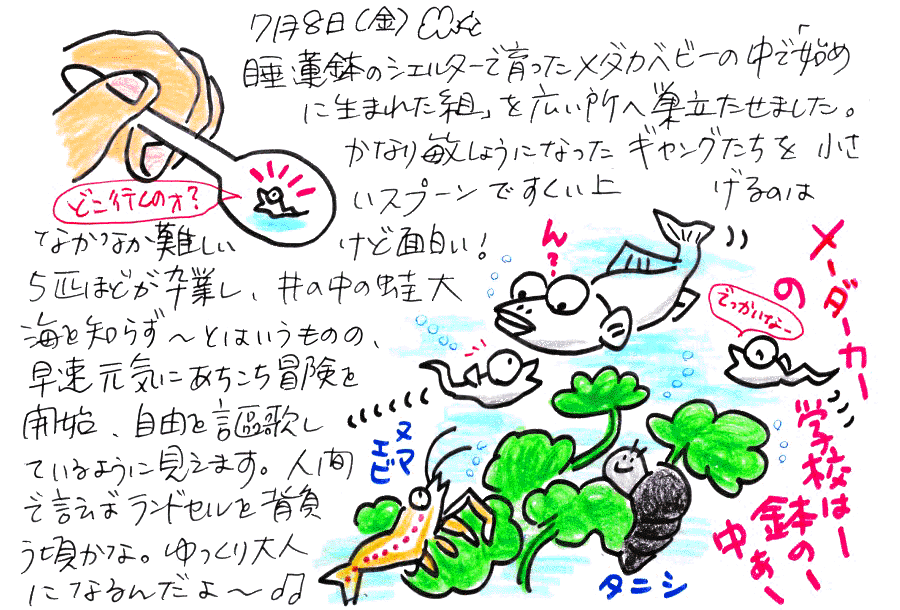 7月8日(金)
睡蓮鉢のシェルターで育ったメダカベビーの中で「始め
に生まれた組」を広い所へ巣立たせました。
かなり敏しょうになったギャングたちを小さ
いスプーンですくい上げるのは
なかなか難しいけど面白い!
5匹ほどが卒業し、井の中の蛙大
海を知らず〜とはいうものの、
早速元気にあちこち冒険を
開始、自由を謳歌し
ているように見えます。人間
で言えばランドセルを背負
う頃かな。ゆっくり大人
になるんだよ〜♫
どこ行くのォ?
ん?
でっかいなー
メーダーカーの
学校はー
鉢のー
中ぁー
ヌマエビ
タニシ